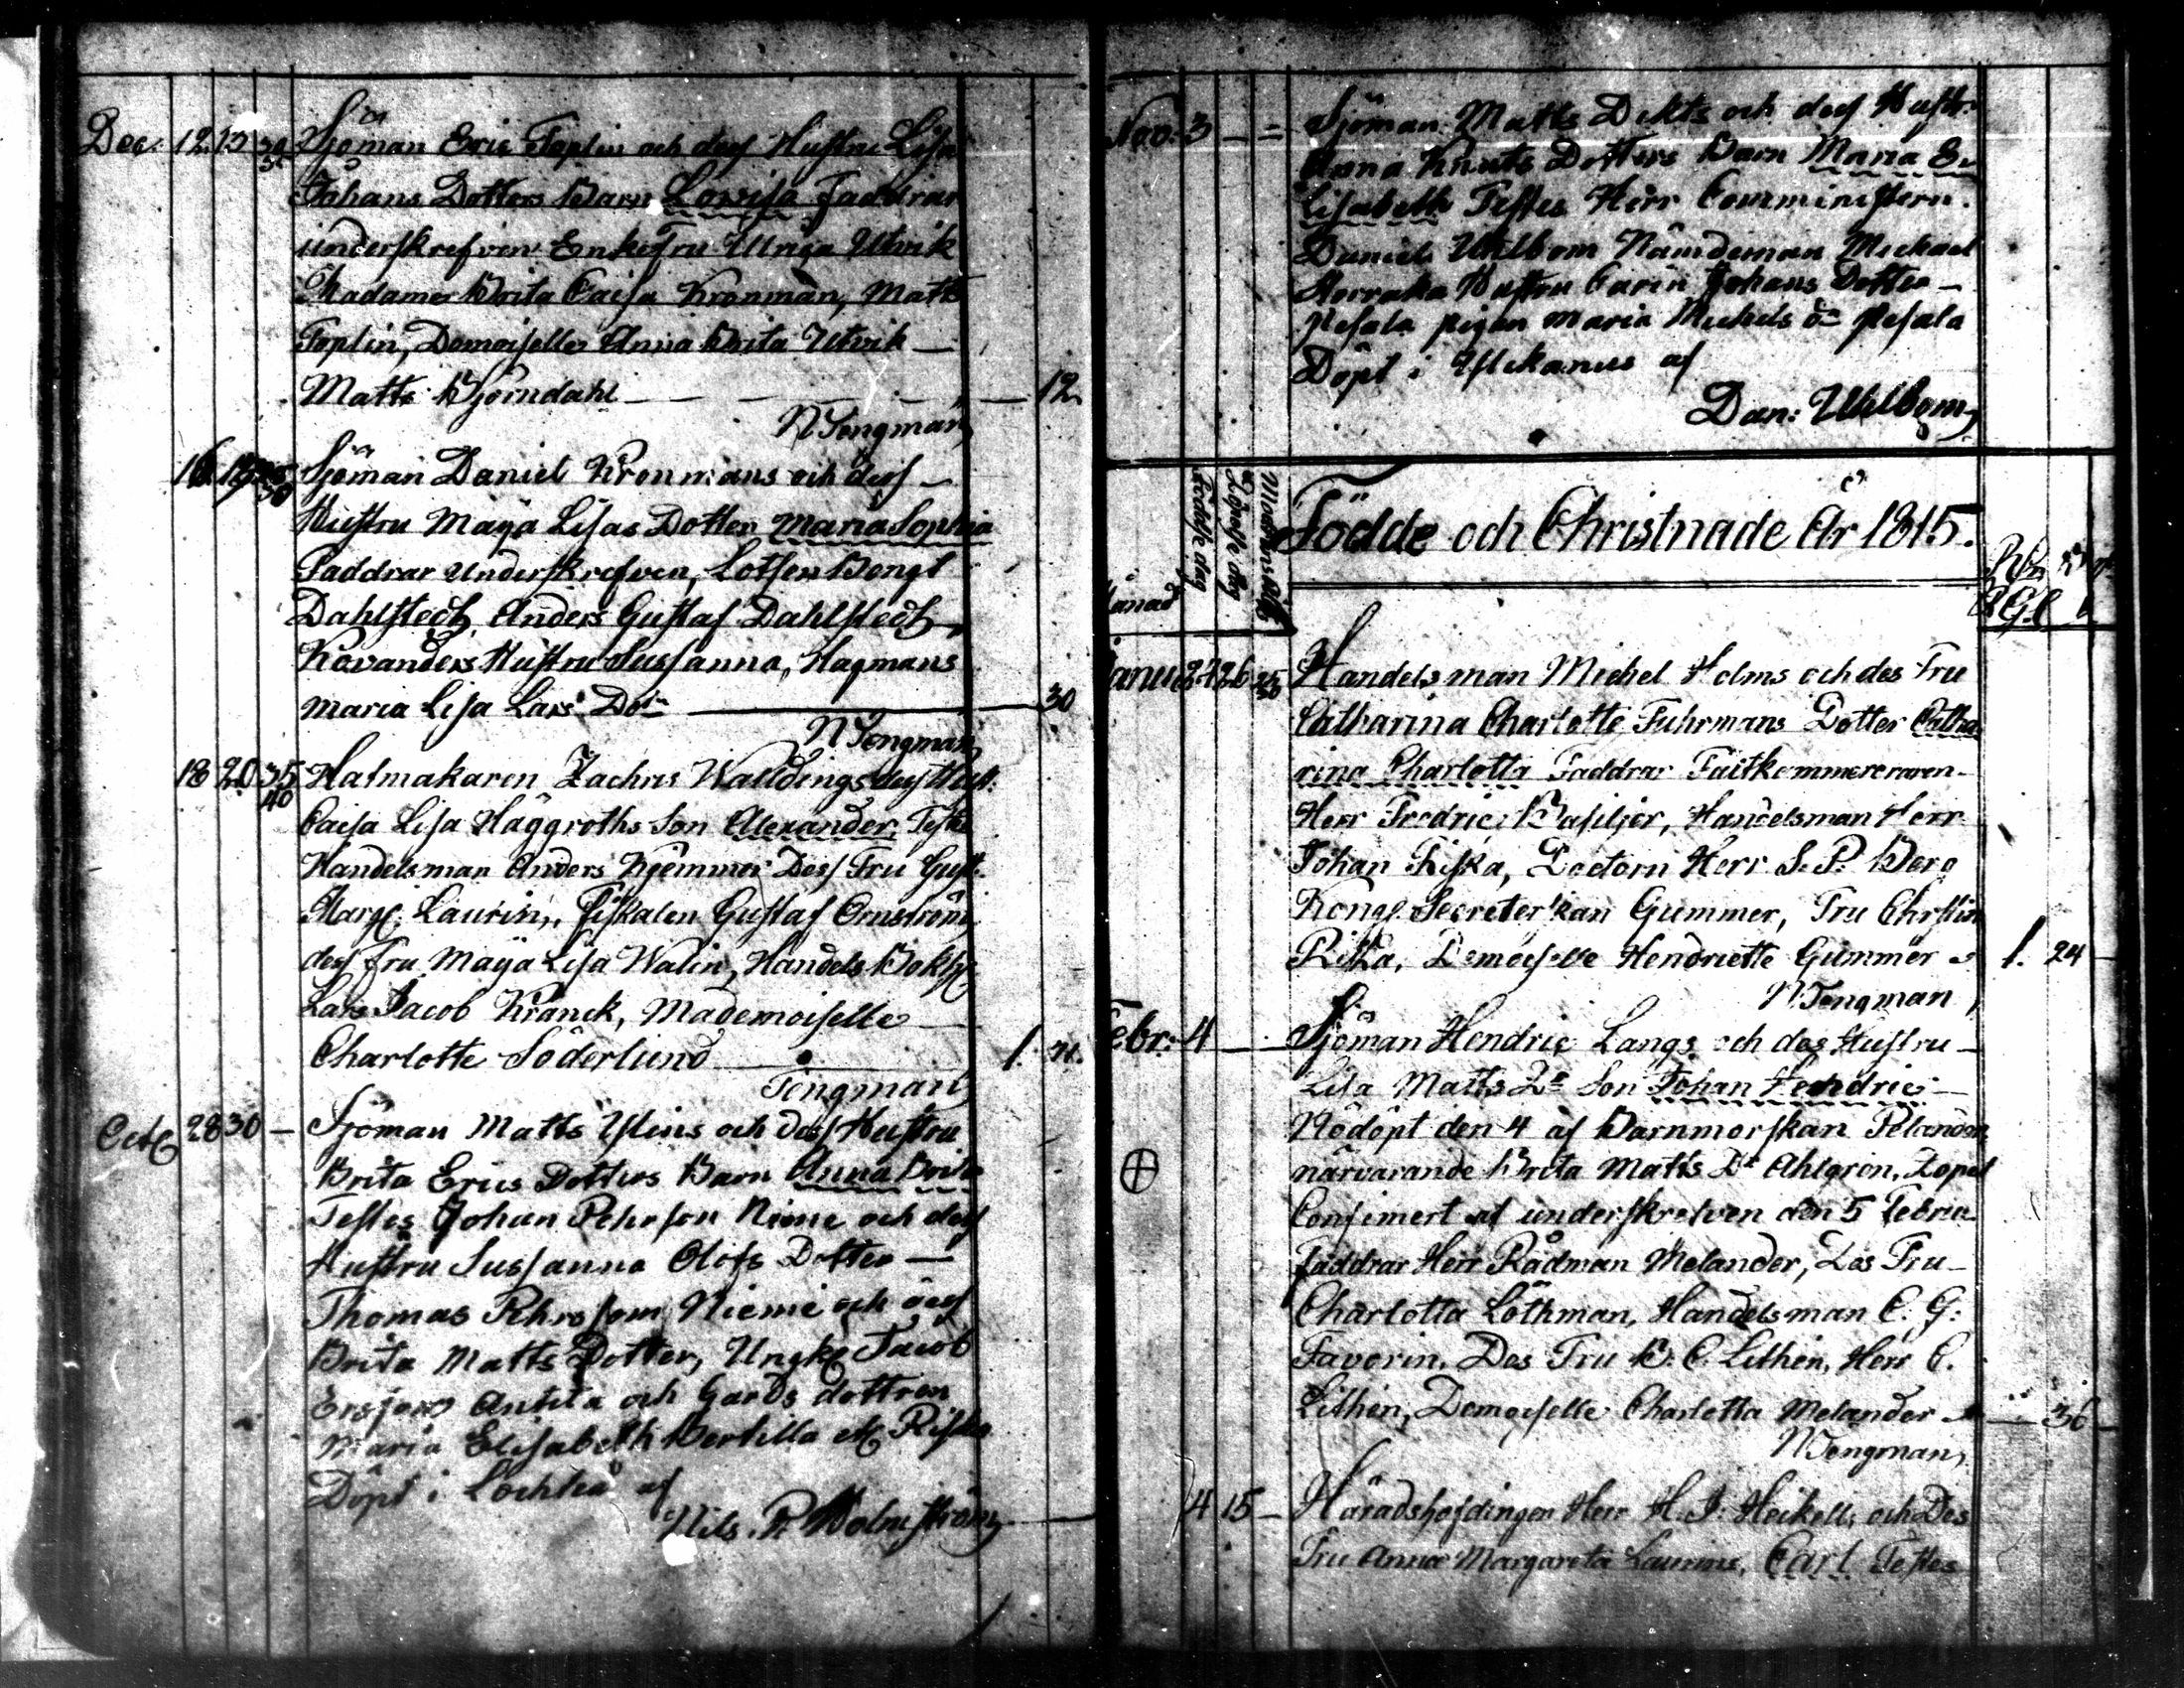 Dec: 12 13 Sjöman Eric Toplin och dess Hustru Lisa
Johans Dotters Barn Lovisa Faddrar
underskrefven Enkefru Ulrica Utvik
Madame Brita Caisa Kronman, Matts
Toplin, Demoiselle Anna Brita Utvik —
Matts Björndahl — — — 12
N Tengman
16 19 Sjöman Daniel Kronmans och dess —
Hustru Maija Lisas Dotter Maria Sophia
Faddrar Underskrefven, Lotsen Bengt
Dahlstedt, Anders Gustaf Dahlstedt,
Kovanders Hustru Sussanna, Hagmans
Maria Lisa Lars Dotr — 30
N Tengman
18 20 35/40 Hatmakaren Zachris Walldings dess Hust:
Caisa Lisa Häggroths Son Alexander, Testes
Handelsman Anders Kjemmer Dess Fru Gust.
Marg: Laurin, Fiskalen Gustaf Ornström,
dess Fru Maija Lisa Walin, Handels Bokh:
Lars Jacob Kranck, Mademoiselle —
Charlotte Söderlund — 1.
Tengman
Octb 28 30 — Sjöman Matts Yllins och dess Hustru
Brita Erics Dotters Barn Anna Brita
Testes Johan Pehrson Niemi och dess
Hustru Sussanna Olofs Dotter —
Thomas Pehrsson Niemi och dess
Brita Matts Dotter, Ungk: Jacob
Ersson Anttila och Gårds dottren
Maria Elisabeth Bertilla
Döpt i Lochteå af
Nils. R Holmström
Nov. 3 — = Sjöman Matts Dekts och dess Hustr:
Anna Knuts Dotters Barn Maria E-
lisabeth Testes Herr Comministern
Daniel Uhlbom Nämdeman Michael
Hustru Carin Johans Dotter —
Pesala pigan Maria Michels Dr Pesala
Döpt i af
Dan: Uhlbom,
Månad
Födelse dag
Födde och Christnade År 1815.
Janu: 26 Handelsman Michel Holms och des Fru
Catharina Charlotte Fuhrmans Dotter Catha-
rina Charlotta Faddrar
Herr Fredric Basilier, Handelsman Herr
Johan Riska, Doctorn Herr S. P. Berg
Kongl. Secreterskan Gummer, Fru Christin
Riska, Demoiselle Hendriette Gummer 1. 24
N. Tengman
Febr: 4 — Sjöman Hendric Langs och des Hustru —
Lisa Matts Dr Son Johan Hendric —
Nödöpt den 4 af Barnmorskan
närvarande Brita Matts Dr Ahlgren, Dopet
Confimert af underskrefven den 5 Februa
Faddrar Herr Rådman Melander, Des Fru —
Charlotta Lothman, Handelsman C. G:
Favorin, Des Fru B. C. Lithen, Herr C.
Lithen, Demoiselle Charlotta Melander — 36
N Tengman,
4 15 — Häradshöfdingen Herr H. J. Heikell, och Des
Fru Anna Margareta Laurins, Carl Testes